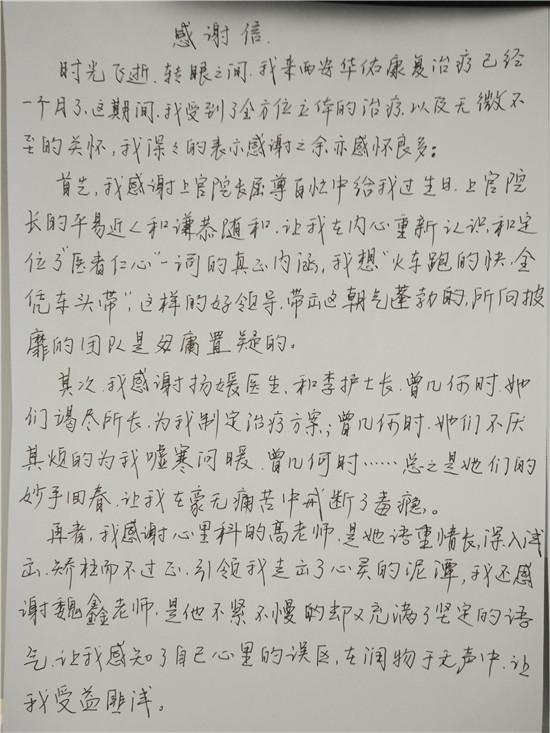 感谢信.
时光飞逝.转眼之间.我来西安华佑康复治疗已经
一个月了.这期间.我受到了全方位立体的治疗.以及无微不
至的关怀,我深々的表示感谢之余.亦感怀良多:
首先,我感谢上官院长屈尊百忙中给我过生日.上官院
长的平易近人和谦恭随和.让我在内心重新认识和定
位了"医者仁心"一词的真正内涵,我想"火车跑的快.全
凭车头带",这样的好领导.带出这朝气蓬勃的,所向披
靡的团队是毋庸置疑的。
其次.我感谢扬媛医生.和李护士长.曾几何时.她
们竭尽所长.为我制定治疗方案;曾几何时.她们不厌
其烦的为我嘘寒问暖.曾几何时……总之是她们的
妙手回春.让我在豪无痛苦中戒断了毒瘾。
再者,我感谢心里科的高老师.是她语重情长,深入浅
出.矫枉而不过正.引领我走出了心灵的泥潭,我还感
谢魏鑫老师,是他不紧不慢的却又充满了坚定的语
气.让我感知了自己心里的误区,在润物于无声中.让
我受益匪浅。